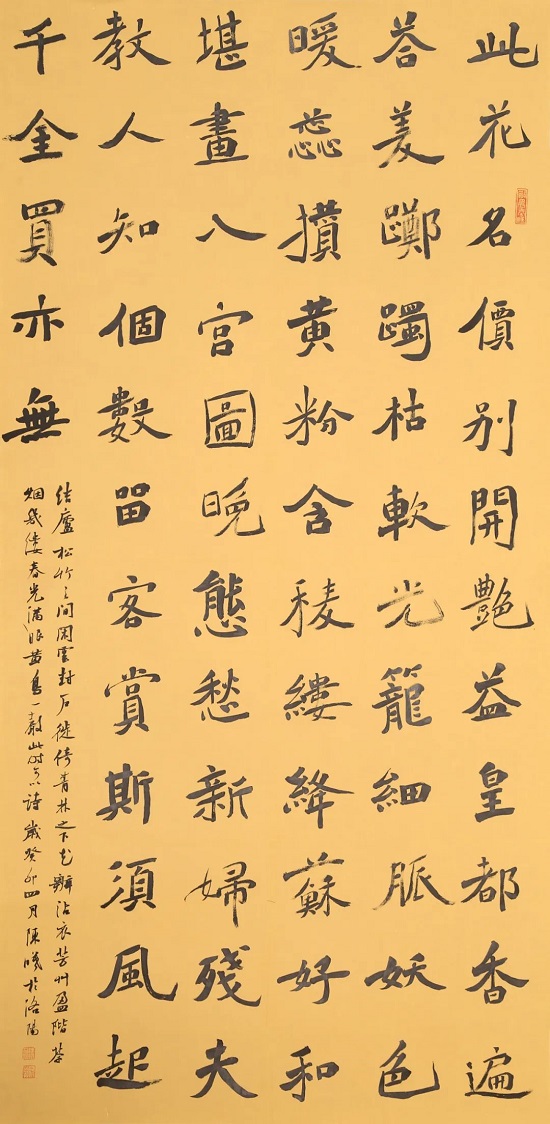 此花名價別開艷益皇都香遍
苓菱躑躅枯軟光籠細脈妖色
暖蕊攢黃粉含稜縷絳蘇好和
堪畫八宮圖晩態愁新婦殘夫
教人知個數留客賞斯須風起
千金買亦無
結廬松竹之間閑雲封戶徙倚青林之下花瓣沾衣芳草盈階茶
烟幾縷春光滿眼黃鳥一聲此時可以詩歲癸卯四月陳曦於洛陽